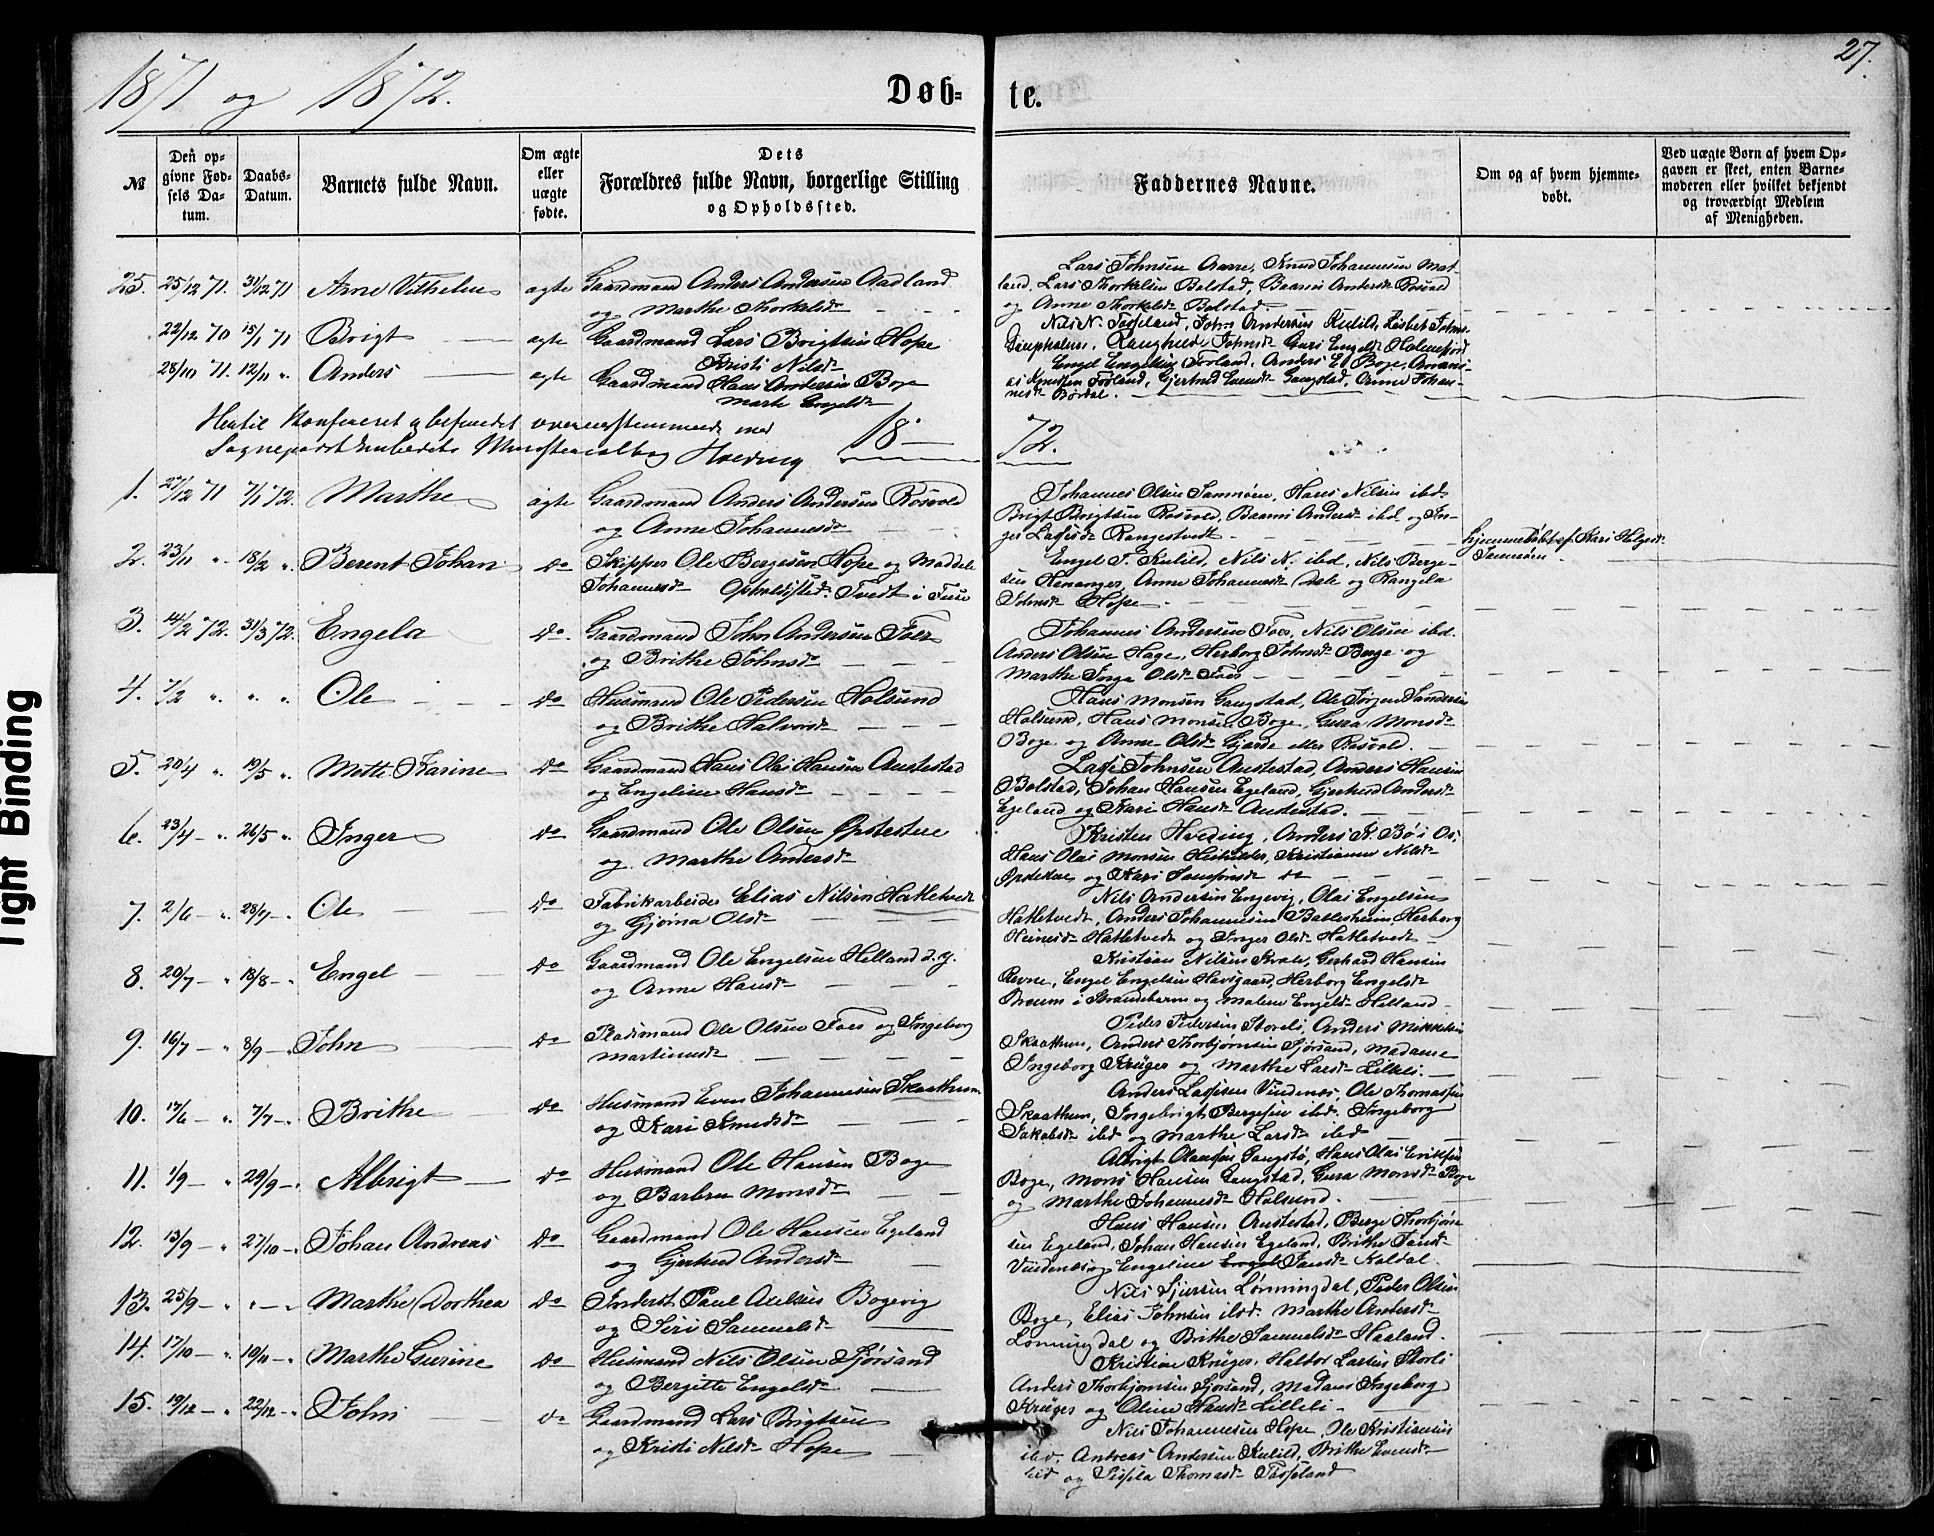 1871 og 1872.
Døb-
te.
27.
№
Den op-
givne Fød-
sels Da-
tum.
Daabs-
Datum.
Barnets fulde Navn.
Om ægte
eller
uægte
fødte.
Dets
Forældres fulde Navn, borgerlige Stilling
og Opholdssted.
Faddernes Navne.
Om og af hvem hjemme-
døbt.
Ved uægte Børn af hvem Op-
gaven er skeet, enten Barne-
moderen eller hvilket bekjendt
og troværdigt Medlem
af Menigheden.
25. 25/12 71. 31/12 71 Arne Vilhelm ægte Gaardmand Anders Andersen Aadland
og Marthe Thorkelsdr
Lars Johnsen Aarre, Knud Johannesen
land, Lars Thorkelsen Bolstad, Andersdr Røsvold
og Anne Thorkelsdr Bolstad
22/12 70 15/1 71 Brigt ægte Gaardmand Lars Brigtsen Hope
Kristi Nilsdr
Nils N. Tøsseland, John Andersen Kulild, Lisbet Johns-
Ranghild Johnsdr Guri Engelsdr Holmefjord
28/10 71. 12/11 " Anders ægte Gaardmand Hans Andersen Boge
Marte Engelsdr
Engel Engelsen Førland, Anders El Boge,
Knudsen Førland, Gjertrud Gangstad, Anne Johan-
nesdr Børdal.
Hertil konfereret og befundet overensstemmende med
Sogneprest Hveding
18
72.
1. 27/12 71 7/1 72. Marthe ægte Gaardmand Anders Andersen Røsvold
og Anne Johannesdr
Johannes Olsen Samnøen, Hans Nilsen ibd
Brigt Brigtsen Røsvold, Andersdr ibd og In-
ger Rangestvedt
2. 23/11 " 18/2 " Berent Johan do Skipper Ole Bergesen Hope og
Johannesdr Opholdssted: Tvedt i Fuse
Engel J. Kulild, Nils N. ibd, Nils Berge-
sen Henanger, Anne Johannesdr Dale og Rangela
Johnsdr Hope
hjemmedøbt af Kari Helgesdr
Samnøen.
3. 14/2 72. 31/3 72. Engela do. Gaardmand John Andersen Foer
og Brithe Johnsdr
Johannes Andersen Foer, Nils Olsen ibd.
Anders Olsen Hage, Herborg Johnsdr Berge og
Marthe Olsdr Foer
4. 7/2 " " " Ole do Husmand Ole Pedersen Holsund
og Brithe Halvorsdr
Hans Monsen Gangstad, Ole Jørgen
Holsund, Hans Monsen Boge, Gurra Monsdr
Boge og Anne Olsdr Gjerde eller Røsvold.
5. 20/4 " 19/5 " Mette Karine do Gaardmand Hans Olai Hansen Austestad
og Engeline Hansdr
Johnsen Austestad, Anders Hansen
Bolstad, Johan Hansen Egeland, Gjertrud Andersdr
Egeland og Kari Hansdr Austestad.
6. 23/4 " 26/5 " Inger do Gaardmand Ole Olsen
og Marthe Andersdr
Kristen Hveding, Anders Bø i Os,
Hans Olai Monsen Kristianne Nilsdr
og Kari do
7. 2/6 " 28/7 Ole do Fabrikarbeider Elias Nilsen Hatletvedt
og Gjøma Olsdr
Nils Andersen Engevig, Olai Engelsen
Hatletvedt, Anders Johannesen Herborg
Hatletvedt og Inger Olsdr Hatletvedt
8. 20/7 " 18/8 " Engel do Gaardmand Ole Engelsen Helland d.y.
og Anne Hansdr
Kristian Nilsen Gerhard Hansen
Revne, Engel Engelsen Havsgaard, Herborg Engelsdr
i Strandebarm og Malene Engelsdr Helland
9. 16/7 " 8/9 " John do Pladsmand Ole Olsen Foer og Ingeborg
Martinusdr
Peder Pedersen Storeli, Anders Mikkelsen
Skaathun, Anders Thorbjørnsen Sjørsand, Madame
Ingeborg Krüger og Marthe Larsdr Lilleli.
10. 17/6 " 7/7 " Brithe do Husmand Johannesen Skaathun
og Kari Knudsdr
Anders Vindenes, Ole Thomassen
Skaathun, Ingebrigt Bergesen ibd. Ingeborg
Jakobsdr ibd og Marthe Larsdr ibd
11. 1/9 " 29/9 " Albrigt do Husmand Ole Hansen Boge
og Barbru Monsdr
Albrigt Hans Olai Eriksen
Boge, Mons Hansen Gangstad, Gura Monsdr Boge
og Marthe Johannesdr Holsund.
12. 13/9 " 27/10 " Johan Andreas do Gaardmand Ole Hansen Egeland
og Gjertrud Andersdr
Hans Hansen Austestad, Berge Thorbjørn-
sen Egeland, Johan Hansen Egeland, Brithe
Vindenes og Engeline Kaldal.
13. 25/9 " " Marthe Dorthea do Inderst Paul Axelsen Bogevig
og Siri Samuelsdr
Nils Sjursen Lønningdal, Peder Olsen
Boge, Elias Johnsen ibd. Marthe Andersdr
Lønningdal og Brithe Samuelsdr Haaland.
14. 17/10 " 10/11 " Marthe Gurine do Husmand Nils Olsen Sjørsand
og Bergitte Engelsdr
Kristian Krüger, Haldor Larsen Storli
Anders Thorbjørnsen Sjørsand, Madam Ingeborg
Krüger og Oline Hansdr Lilleli
15. 19/12 " 22/12 " John do Gaardmand Lars Brigtsen
og Kristi Nilsdr Hope
Nils Johannesen Hope, Ole Kristiansen
ibd, Andreas Andersen Kulild, Brithe
ibd og Thomasdr Tøsseland
Tight Binding